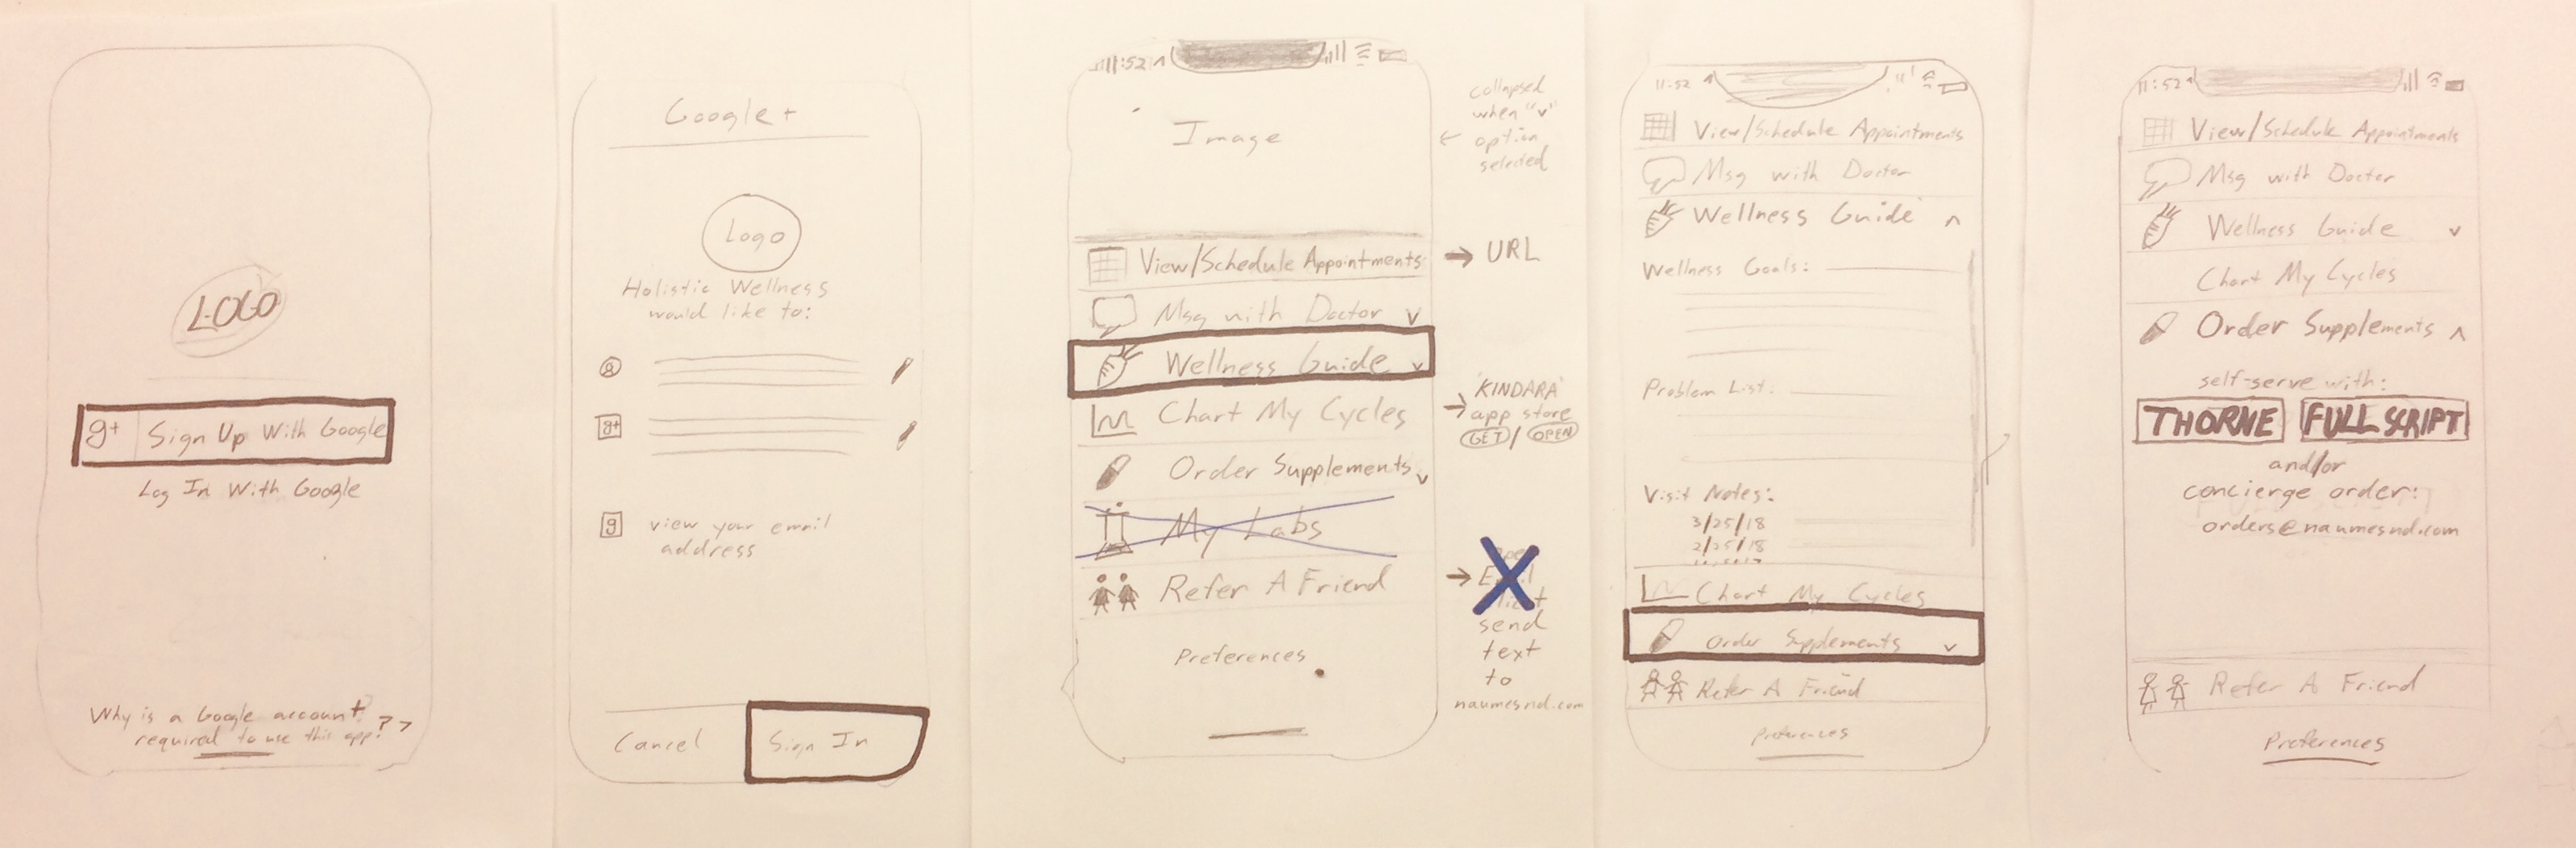 LOGO
g+ Sign Up With Google
Log In With Google
Why is a Google account
required to use this app? >
Google+
Logo
Holistic Wellness
would like to:
g+
g view your email
address
Cancel
Sign In
11:52
Image
collapsed
when "v"
← option
selected
View/Schedule Appointments → URL
Msg with Doctor v
Wellness Guide v
Chart My Cycles
'KINDARA'
→ app store
GET / OPEN
Order Supplements v
My Labs
Refer A Friend →
send
text
to
naumesnd.com
Preferences
11:52
View/Schedule Appointments
Msg with Doctor
Wellness Guide ^
Wellness Goals:
Problem List:
Visit Notes:
3/25/18
2/25/18
Chart My Cycles
Order Supplements v
Refer A Friend
Preferences
11:52
View/Schedule Appointments
Msg with Doctor
Wellness Guide v
Chart My Cycles
Order Supplements ^
self-serve with:
THORNE FULL SCRIPT
and/or
concierge order:
orders@naumesnd.com
Refer A Friend
Preferences